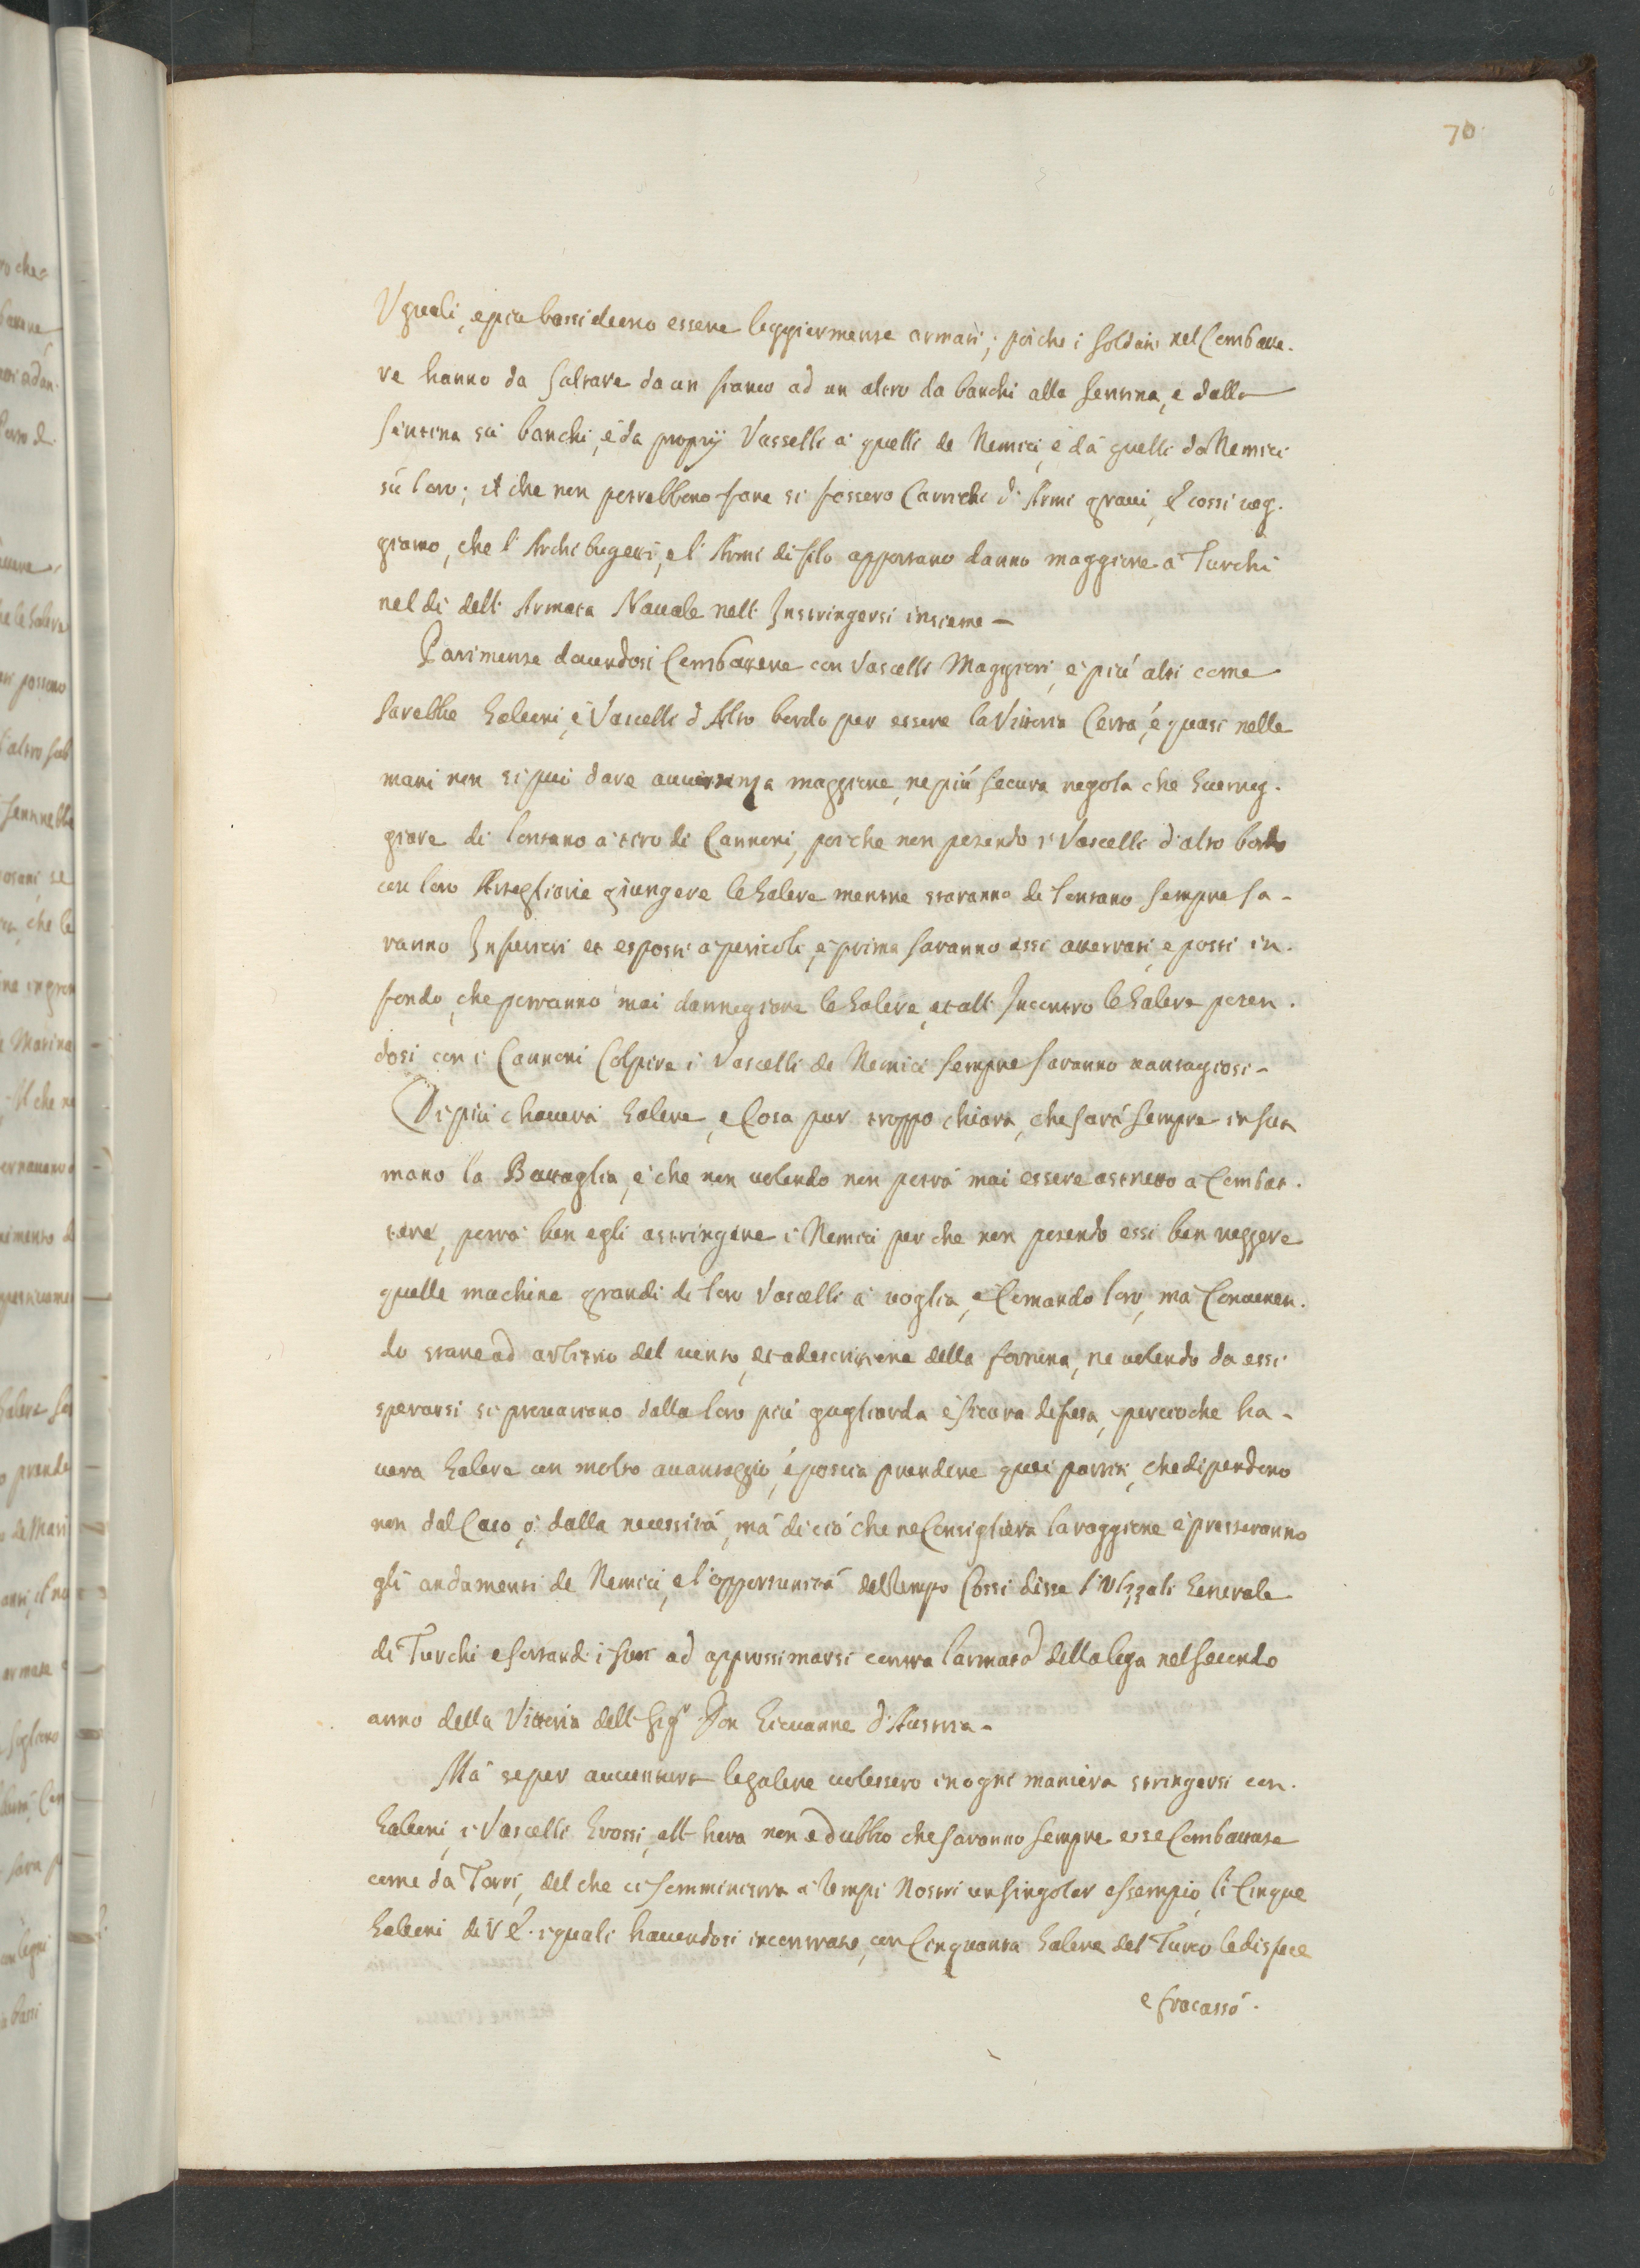 70
Uguali, e piu bassi deeno essere leggiermente armati; poiche i soldati nel Combatte.
re hanno da saltare da un fianco ad un altro da banchi alla sentina, e dalla
sintina sù banchi, è da proprij Vasselli à quelli de Nemici, è dà quelli da Nemici
sù loro; il che non potrebbono fare si fossero Carrichi di Armi gravi, & cossi veg.
giamo, che l'Archibugeri, e l'Armi di filo apportano danno maggiore à Turchi
nel di dell'Armata Navale nell'Instringersi insieme -
Parimente dovendosi Combattere con Vascelli Maggiori, è più alti come
sarebbe Galeoni, è Vascelli d'Alto bordo per essere la Vittoria Certa, è quasi nelle
mani non si può dare avvertenza maggiore, ne più secura regola che Guerreg.
giare di lontano à tiro di Cannoni, poiche non potendo i Vascelli d'alto bordo
con loro Artegliarie giungere le Galere mentre staranno di lontano sempre sa-
ranno Inferiori et esposti à pericoli, è prima saranno essi atterrati, e posti in.
fondo, che potranno mai danneggiare le Galere, et all'Incontro le Galere poten.
dosi con i Cannoni Colpire i Vascelli de Nemici sempre saranno vantagiosi -
Di più c'haverà Galere, è Cosa pur troppo chiara, che sarà sempre in sua
mano la Battaglia, è che non volendo non potrà mai essere astretto à Combat.
tere, potrà ben egli astringere i Nemici perche non potendo essi ben reggere
quelle machine grandi di loro Vascelli à voglia, è Comando loro, mà Convenen.
do stare ad arbitrio del vento, et à descrittione della fortuna, ne volendo da essi
sperarsi si provaciano dalla loro più gagliarda è sicura difesa, percioche ha-
vera Galere con molto avantaggio, è possia prendere quei partiti, che dipendono
non dal Caso, ò dalla necessità, mà di ciò che ne Consigliera la raggione è presteranno
gli andamenti de Nemici, e l'opportunità del tempo Cossi disse l'Ulzzali Generale
di Turchi essortandi i suoi ad approssimarsi contra l'armata della lega nel secondo
anno della Vittoria dell Sigr Don Giovanne d'Austria -
Mà se per avventura le galere volessero in ogni maniera stringersi con.
Galeoni, è Vascelli Grossi, all'hora non è dubbio che saranno sempre esse Combattute
come dà Torri, del che ci somministra à tempi Nostri un singolar essempio, li Cinque
Galeoni di V E. i quali havendosi incontrato, con Cinquanta Galere del Turco le disfece
e fracassò.